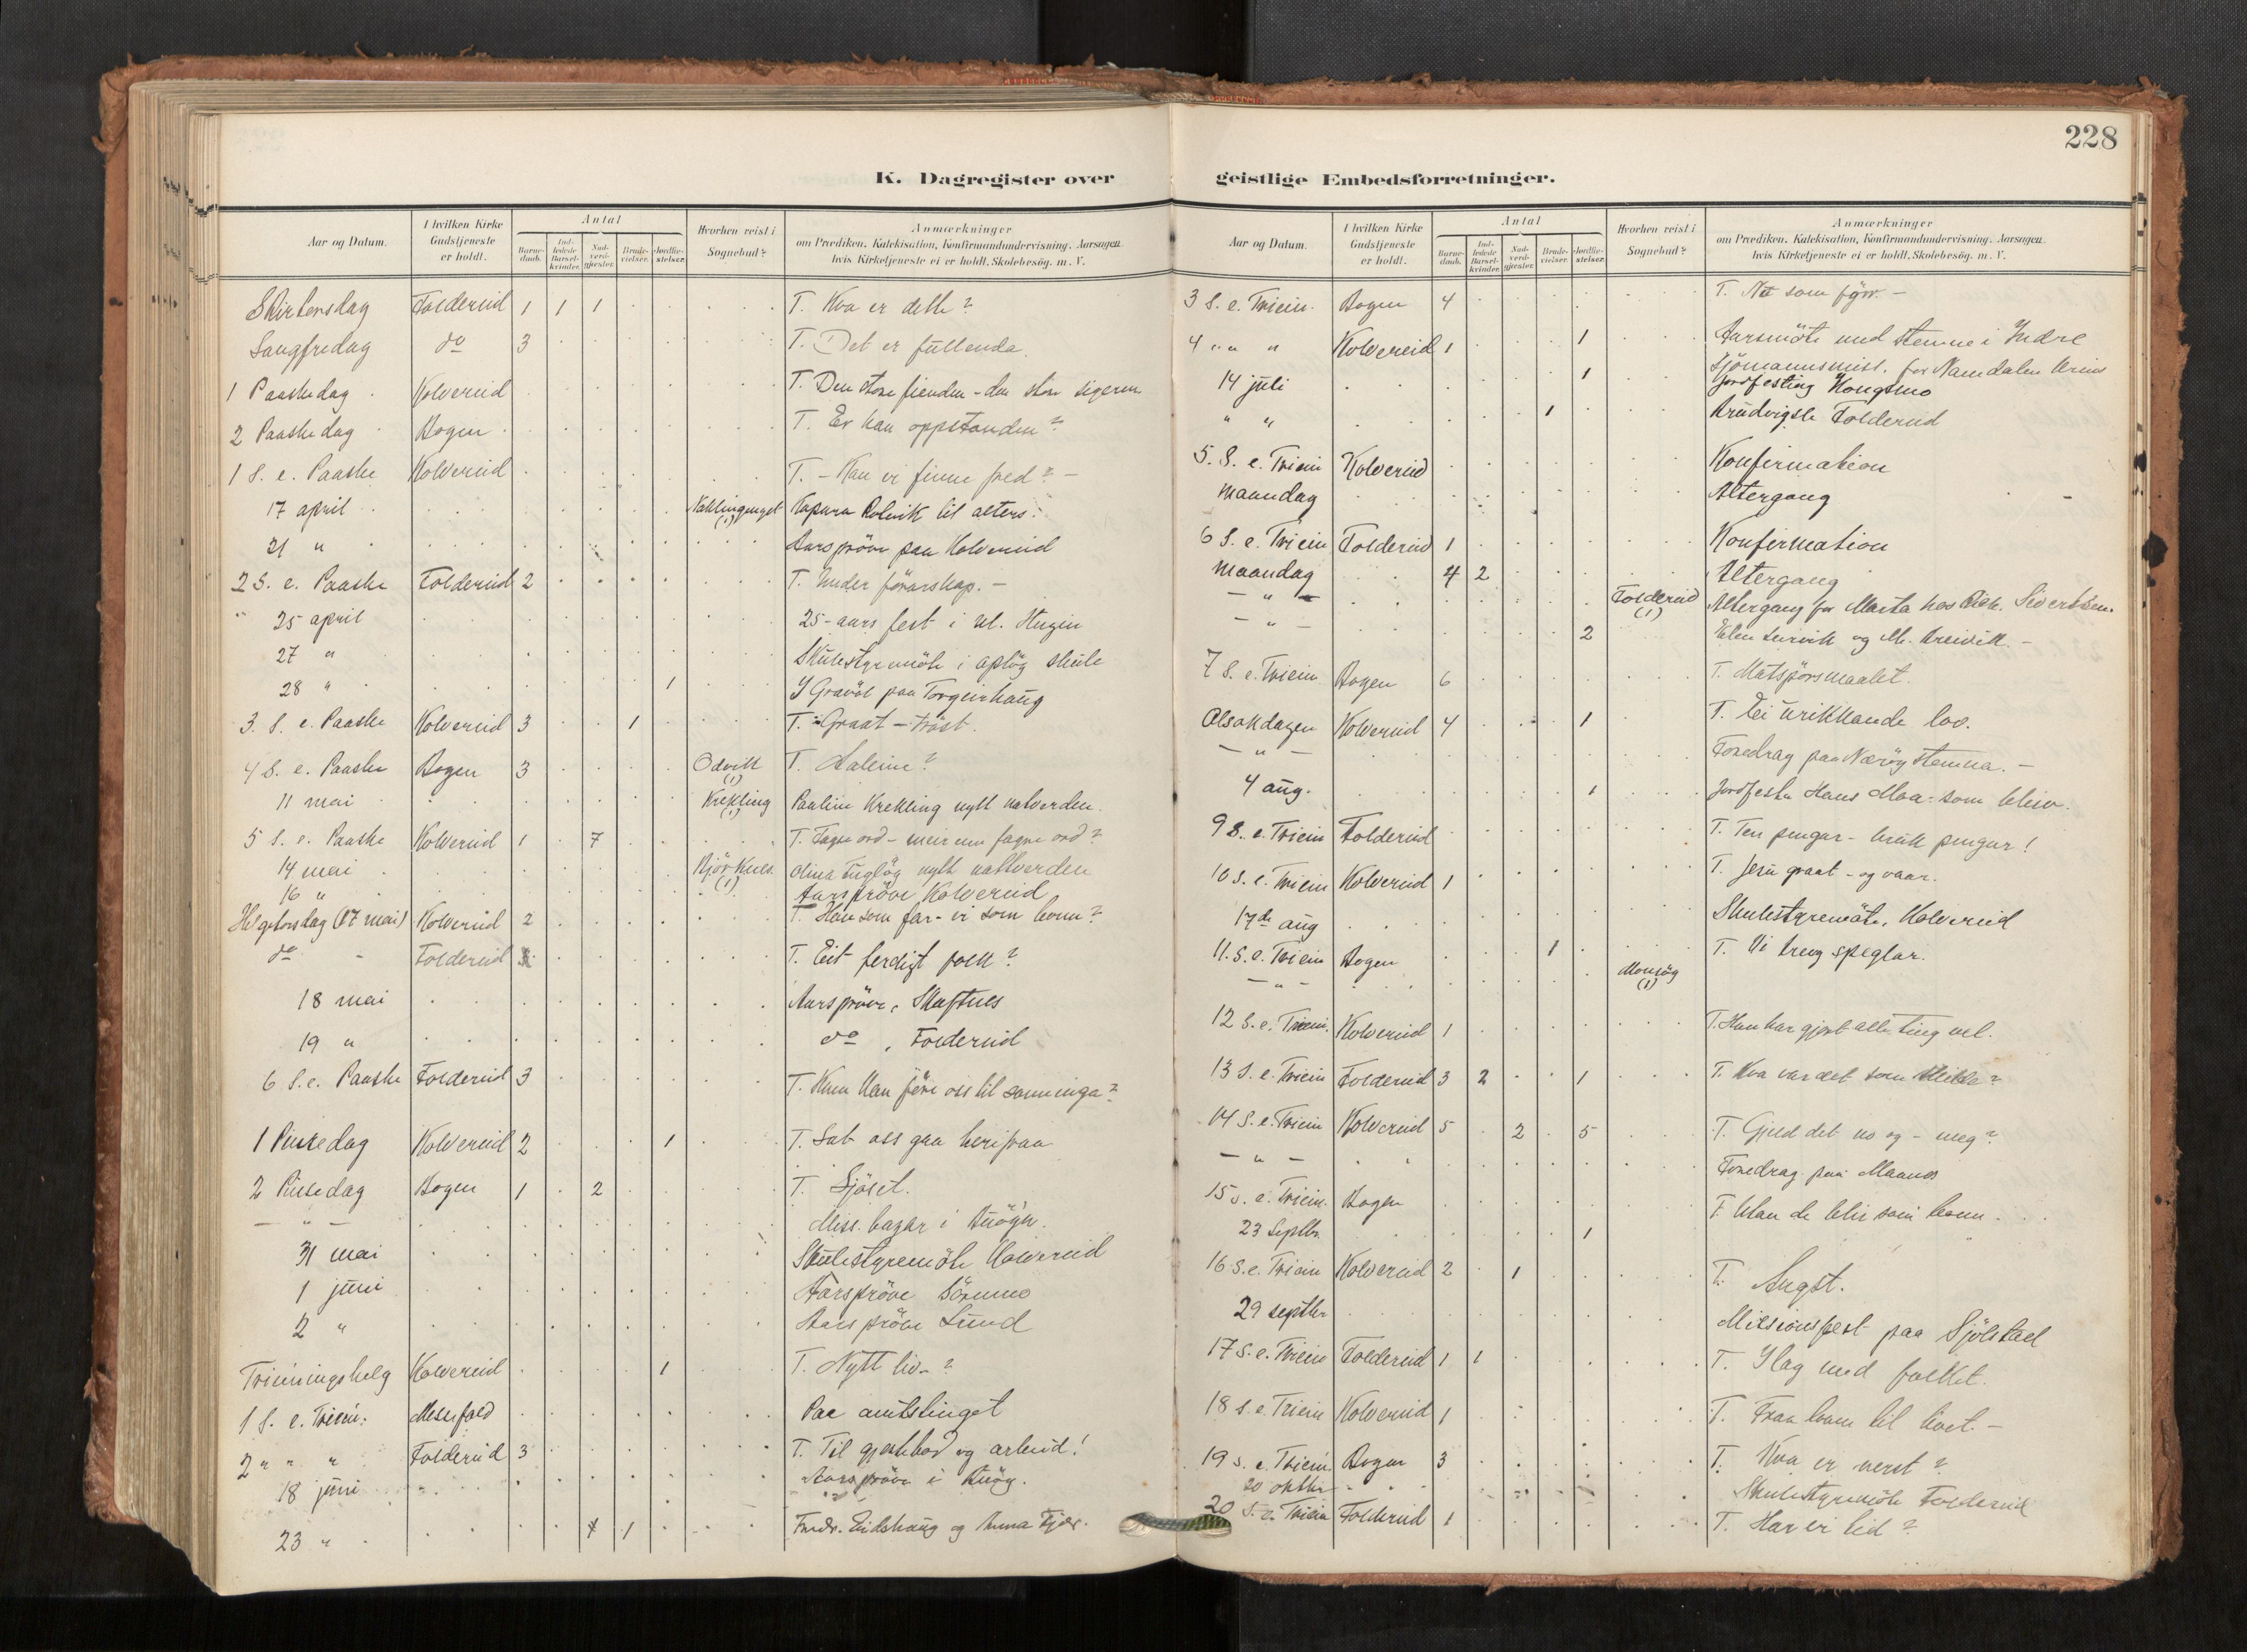 228
K. Dagregister over geistlige Embedsforretninger.
Aar og Datum. I hvilken Kirke Gudstjeneste er holdt. Antal Barnedaab. Indledede Barselkvinder. Nadverdgjester. Brudevielser. Jordfæstelser. Hvorhen reist i Sognebud? Anmærkninger om Prædiken, Katekisation, Konfirmandundervisning. Aarsagen hvis Kirketjeneste ei er holdt, Skolebesøg. m. V.
Skirtorsdag Foldereid 1 1 1 T. Kva er dette?
Langfredag do 3 T. Det er fullenda.
1 Paaskedag Kolvereid T. Den store fienden - den store sigeren
2 Paaskedag Bogen T. Er han oppstanden?
1 S. e. Paaske Kolvereid T. - Kan vi finne fred? -
17 april (1) til alters.
21 " Aarsprøve paa Kolvereid
2 S. e. Paaske Foldereid 2 T. Under førarskap. -
25 april 25-aars fest i ul. Hugin
27 " Skulestyremøte i Opløy skule
28 " 1 I Gravøl paa Torgeirhaug
3. S. e. Paaske Kolvereid 3 1 T. Graat - trøst.
4 S. e. Paaske Bogen 3 Odvik (1) T. Aaleine?
11 mai Krekling (1) Pauline Krekling nytt natverden.
5 S. e. Paaske Kolvereid 1 7 T. Fagre ord - meir enn fagre ord?
14 mai (1) Olina nytt nattverden
16 " Aarsprøve Kolvereid
Helgetorsdag (17 mai) Kolvereid 2 T. Han som far - vi som
do - Foldereid T. Eit ferdigt folk?
18 mai Aarsprøve, Skaftnes
19 " do, Foldereid
6 S. e. Paaske Foldereid 3 T. føre oss til sanninga?
1 Pinsedag Kolvereid 2 1 T. Lat oss gaa herifraa
2 Pinsedag Bogen 1 2 T. Ljøset.
— " — Miss. bazar i
31 mai Skulestyremøte Kolvereid
1 juni Aarsprøve
2 " Aarsprøve Lund
Triningshelg Kolvereid 1 T. Nytt liv - ?
1 S. e. Trein. Messefald Paa amtstinget
2 " " " Foldereid 3 T. Til gjestebod og arbeid!
18 juni Aarsprøve i
23 " 1 Fredr. Eidshaug og Anna
Aar og Datum. I hvilken Kirke Gudstjeneste er holdt. Antal Barnedaab. Indledede Barselkvinder. Nadverdgjester. Brudevielser. Jordfæstelser. Hvorhen reist i Sognebud? Anmærkninger om Prædiken, Katekisation, Konfirmandundervisning. Aarsagen hvis Kirketjeneste ei er holdt, Skolebesøg. m. V.
3 S. e. Triein. Bogen 4 T. No som før. -
4 " " " Kolvereid 1 1 Aarsmøte med stemne i Indre
Sjömannsmis. for Namdalen
14 juli 1 Jordfesting Kongsmo
" " 1 Brudvigsle Foldereid
5. S. e. Triein Kolvereid Konfirmation
maandag Altergang
6 S. e. Triein Foldereid 1 Konfirmation
maandag 4 2 Altergang
— " — Foldereid (1) Altergang for Marta hos Sivertsen.
— " — 2
7 S. e. Triein Bogen 6 T. Matspørsmaalet.
Olsokdagen Kolvereid 4 1 T. Ei urikkande lov.
— " — Foredrag paa Nærøystemna. -
4 aug. 1 Jordfeste Hans Moa som
9 S. e. Triein Foldereid T. Ten pengar - bruk pengar!
10 S. e. Triein Kolvereid 1 T. Jesu graat - og vaar.
17de aug Skulestyremøte, Kolvereid
11. S. e. Triein Bogen 1 T. Vi treng speglar.
— " — (1)
12 S. e. Triein. Kolvereid 1 T. Han har gjort alle ting vel.
13 S. e. Triein Foldereid 3 2 1 T. Kva var det som skilde?
14 S. e. Triein Kolvereid 5 2 5 T. Gjeld det no og - meg?
— " — Foredrag paa
15 s. e. Triein. Bogen T.
23 Septbr. 1
16 S. e. Triein Kolvereid 2 1 T. Angst.
29 septbr Misionsfest paa Sjølstad
17 S. e. Triein Foldereid 1 1 T. I lag med folket.
18 S. e. Triein Kolvereid 1 T. Fraa til livet. -
19 s. e. Triein. Bogen 3 T. Kva er verst?
20 oktbr Skulestyremøte Foldereid
20 S. e. Triein Foldereid 1 T. Har vi tid?